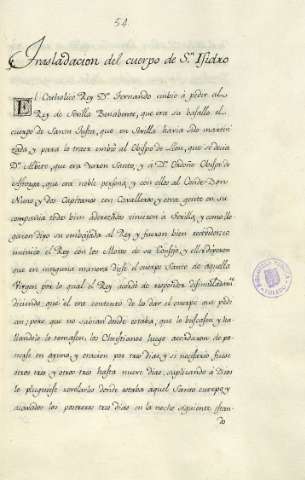 54.
Trasladacion del cuerpo de S.n Isidro
El Catholico Rey D.n Fernando embio à pedir al
Rey de Sevilla Benabente, que era su basallo el
cuerpo de Santa Justa, que en Sevilla havia sido martiri
zada, y para lo traer embió al Obispo de Leon, que se decia
D.n Albito, que era Varon Santo, y a D.n Ordoño Obispo de
Astorga, que era noble persona, y con ellos al Conde Don
Nuno, y dos Capitanes con Cavalleros y otra gente en su
compañia todos bien aderezados vinieron à Sevilla, y como lle
garon dijo su embajada al Rey y fueron bien recividos
el Rey con los Moros de su Consejo, y ellos dijeron
que en ninguna manera diese el cuerpo Santo de aquella
Virgen por lo qual el Rey acordó de responder disimulada
diciendo, que el era contento de la dar el cuerpo que pedi
an; pero que no sabian donde estaba, que lo buscasen y ha
llandole lo tomasen, los Christianos luego acordaron de po
nerse en ayuno y oracion por tres dias, y si necesario fuese
otros tres y otros tres hasta nueve dias, suplicando à Dios
le pluguiese revelarles donde estaba aquel Santo cuerpo, y
acavados los postreros tres dias en la noche siguiente estan
do